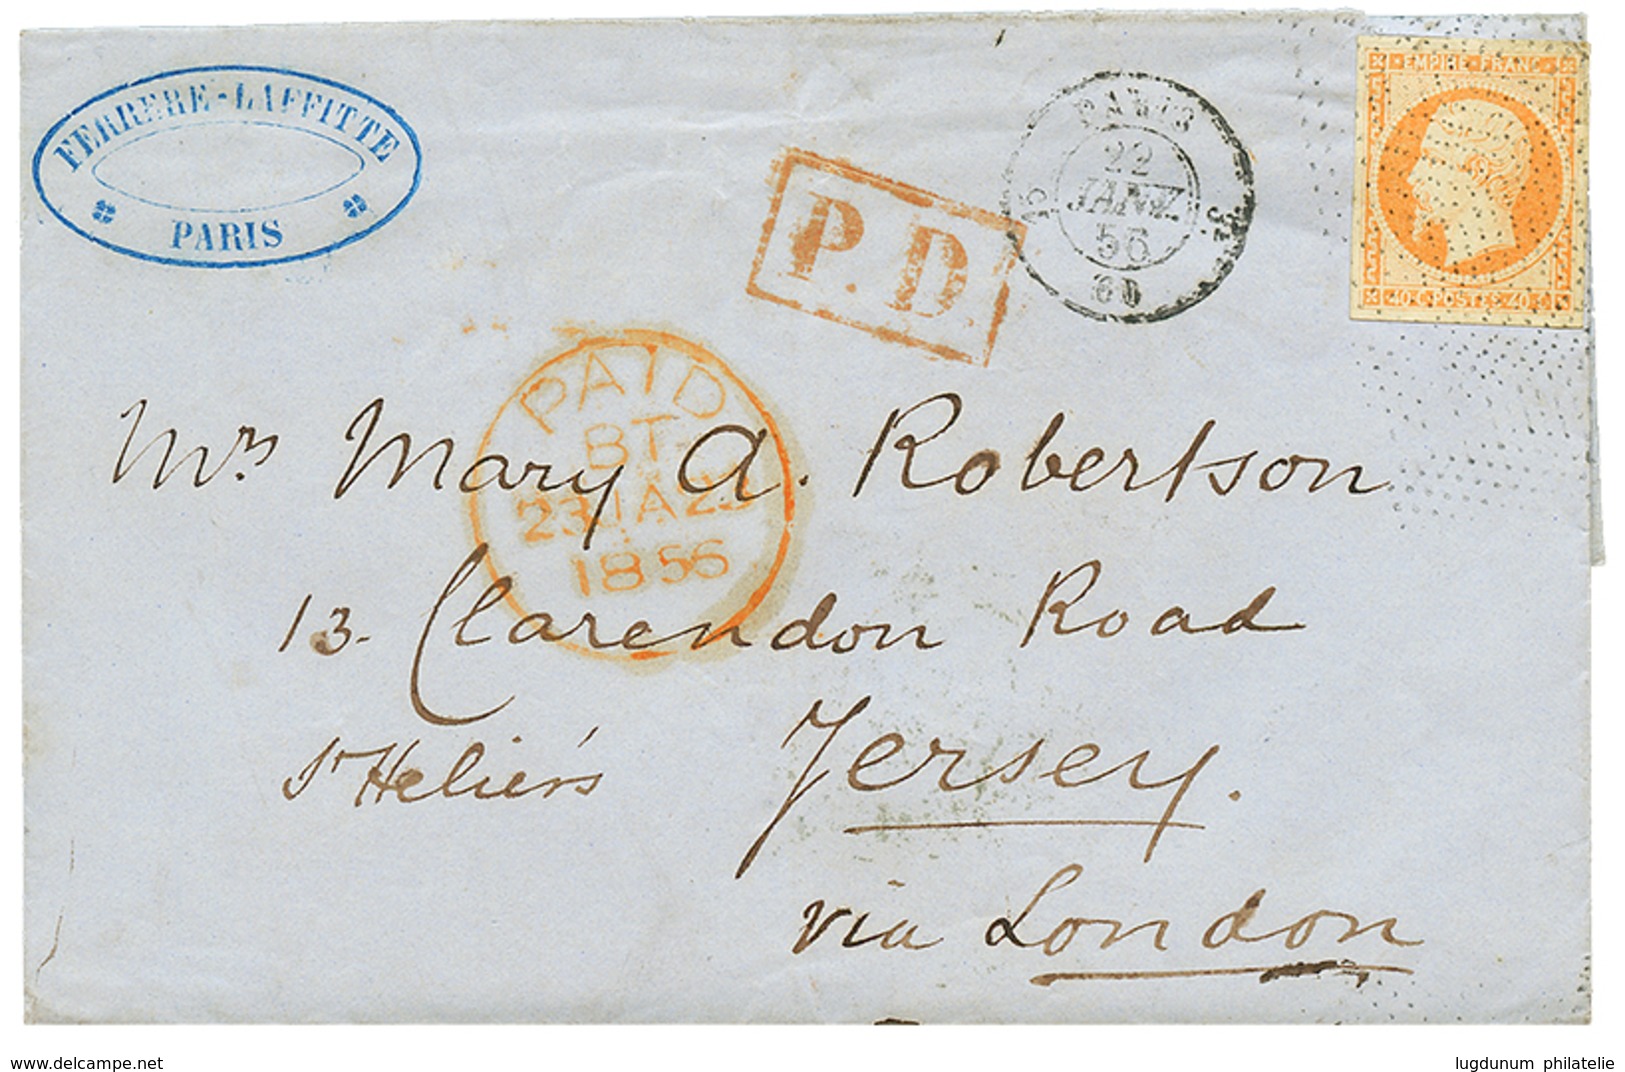 FERRERE-LAFFITTE
PARIS
P.D.
PARIS
22
JANV.
56
60
EMPIRE · FRANC
40 · C · POSTES · 40 · C
PAID
BT
23 JA 23
1856
Mrs Mary A. Robertson
13. Clarendon Road
St Helier's Jersey.
via London
www.delcampe.net
lugdunum philatelie